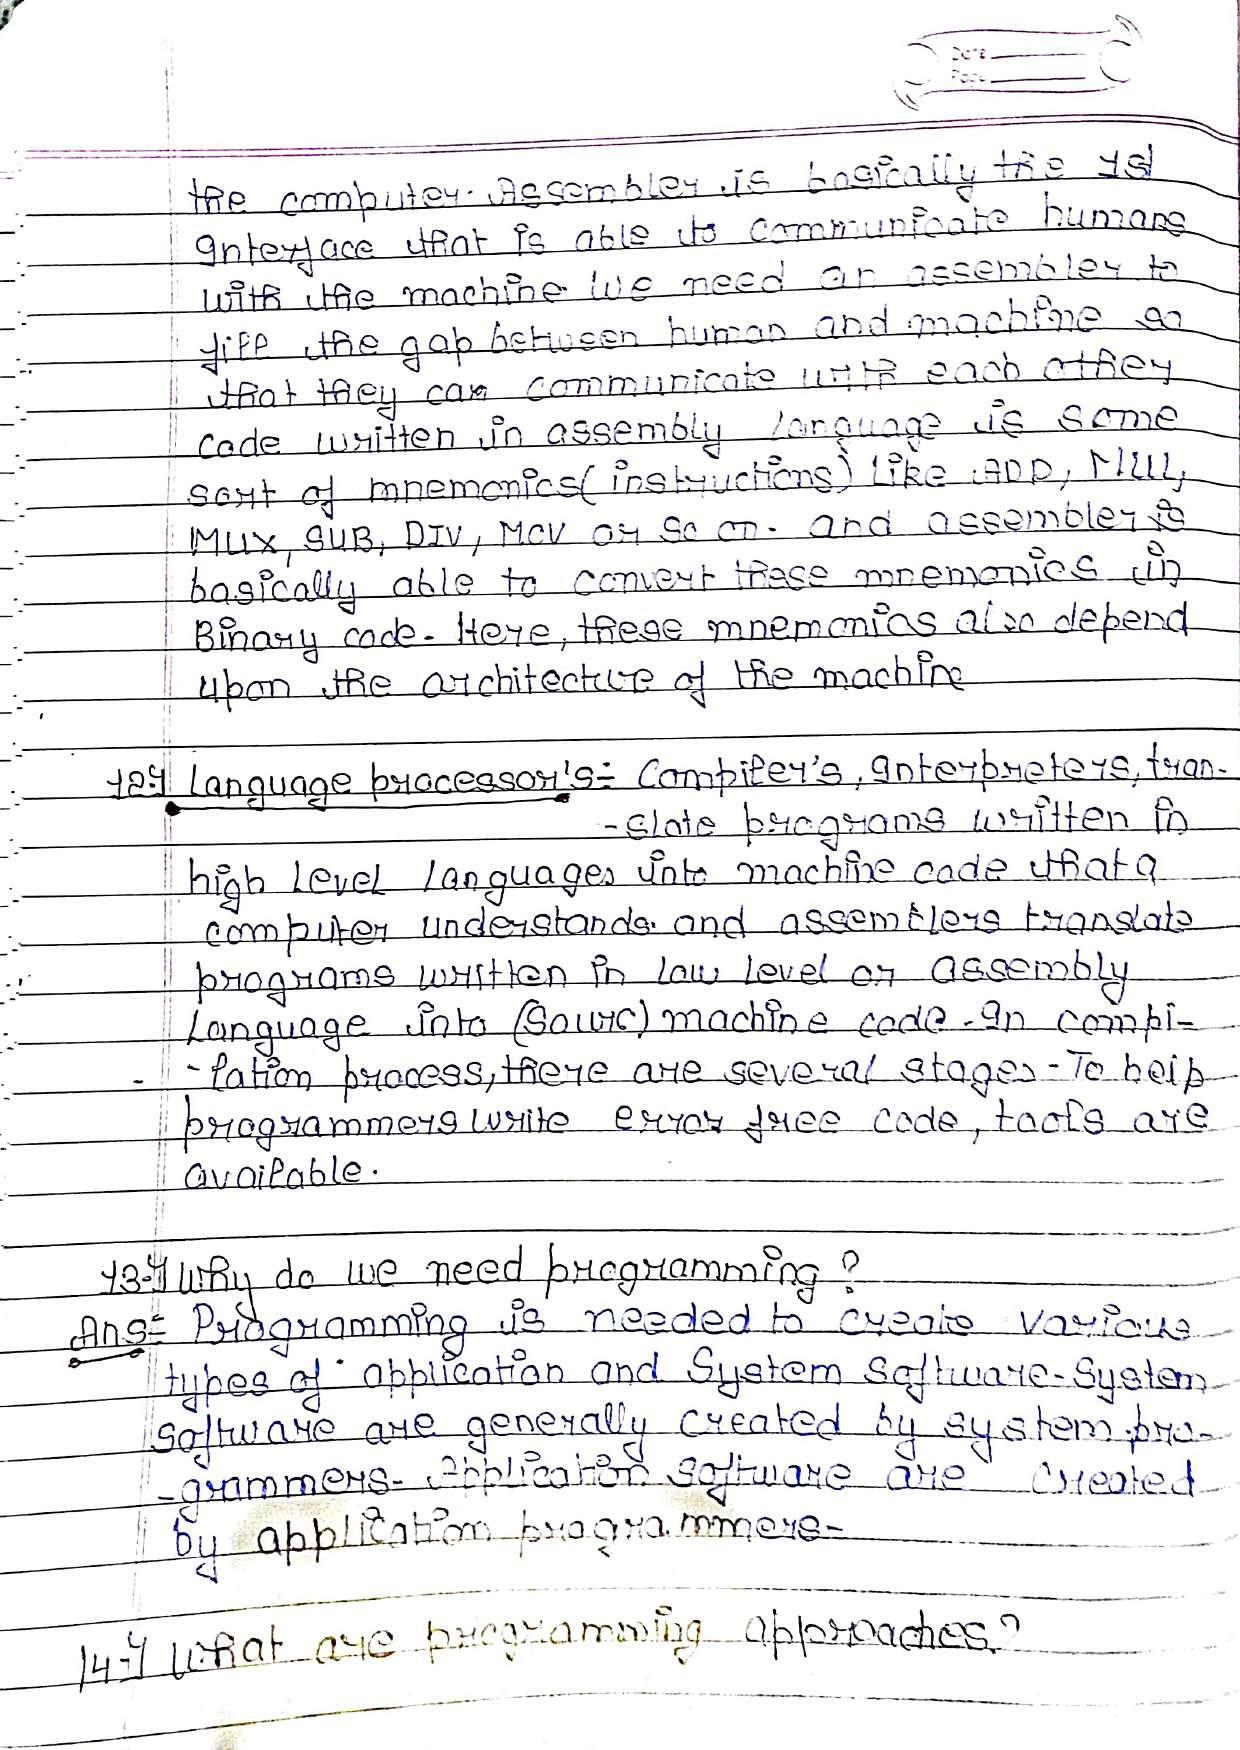 Date
Page
the computer. Assembler is basically the 1st
Interface that is able to communicate humans
with the machine. We need an assembler to
fill the gap between human and machine so
that they can communicate with each other
code written in assembly language is some
sort of mnemonics(instructions) like ADD, MUL,
MUX, SUB, DIV, MOV or so on. and assembler is
basically able to convert these mnemonics in
Binary code. Here, these mnemonics also depend
upon the architecture of the machine
12. Language processor's:- Compiler's, Interpreters, tran-
-slate programs written in
high level languages into machine code that a
computer understands. and assemblers translate
programs written in low level or assembly
language into (Sourc) machine code. In compi-
-lation process, there are several stages. To help
programmers write error free code, tools are
available.
13. Why do we need programming?
Ans:- Programming is needed to create various
types of application and System Software. System
software are generally created by system pro-
-grammers. Application software are created
by application programmers.
14. What are programming approaches?